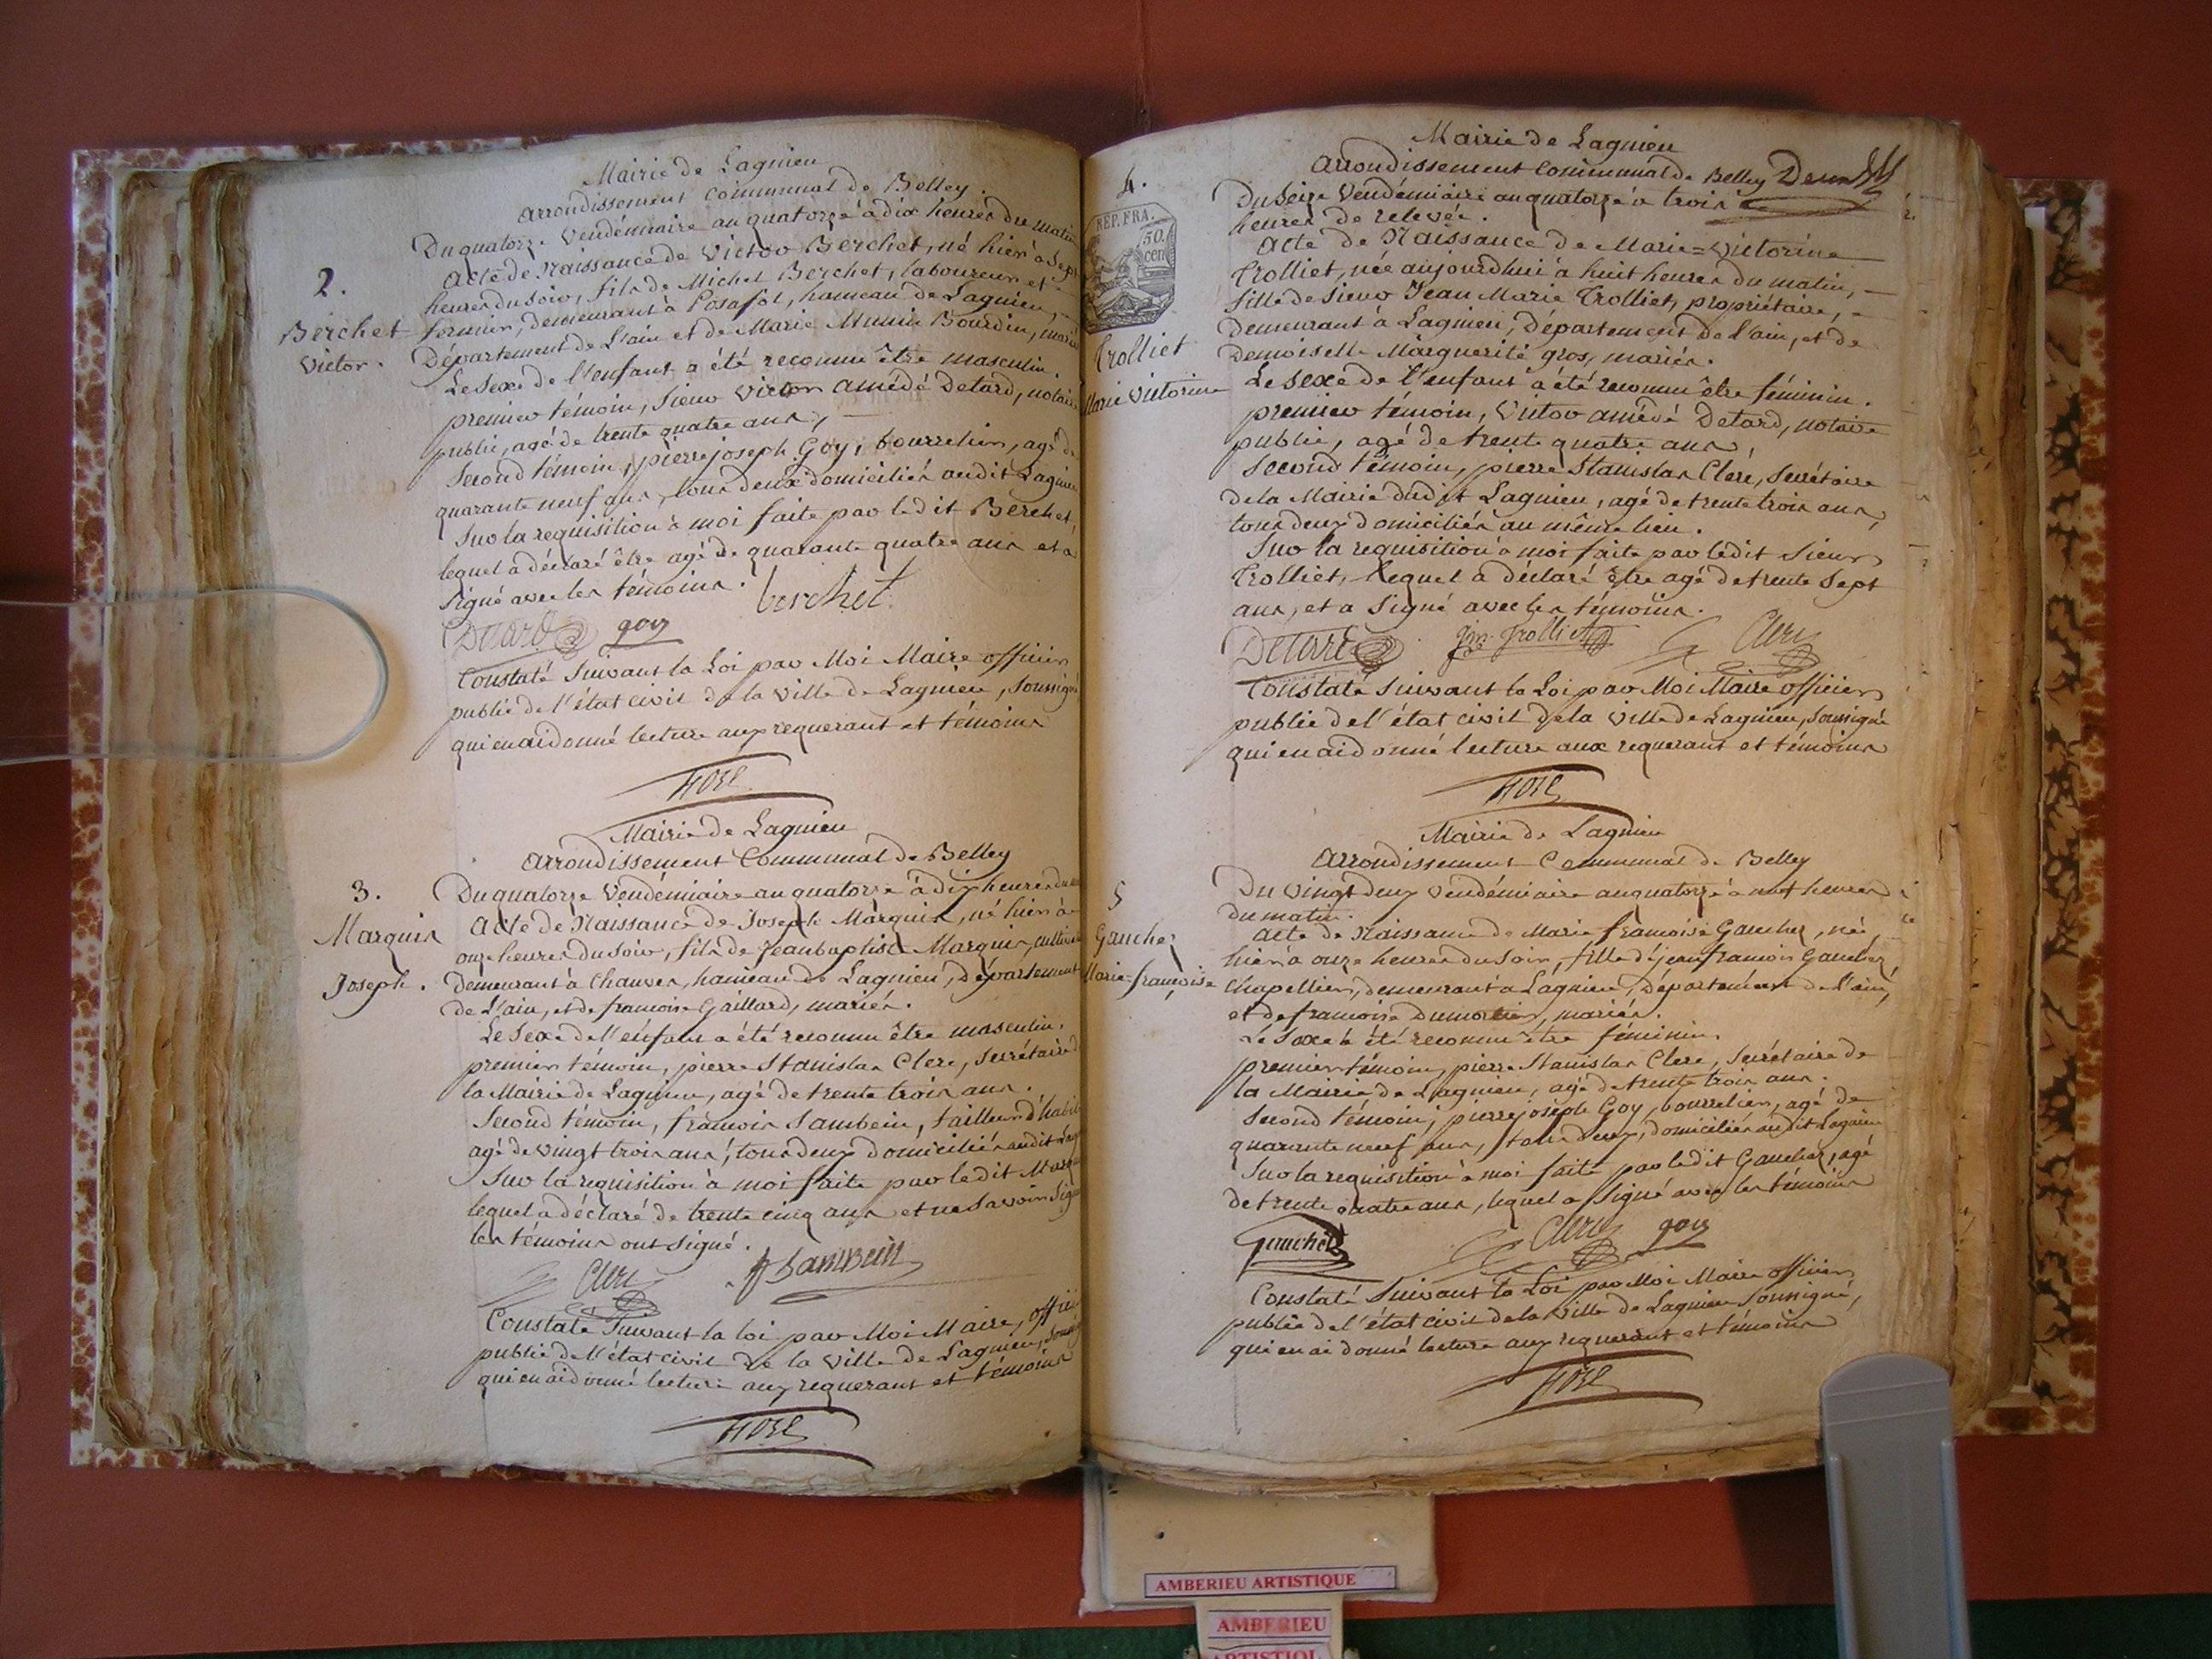 Mairie de Lagnieu
arrondissement communal de Belley.
Du quatorze Vendémiaire an quatorze à dix heures du matin
Acte de Naissance de Victor Berchet, né hier à Sept
heures du soir, fils de Michel Berchet, laboureur et
fermier, demeurant à Posafol, hameau de Lagnieu,
Département de L'ain et de Marie Bourdin, mariés
Le Sexe de l'enfant a été reconnu être masculin.
premier témoin, Sieur Victor amédé Detard, notaire
public, agé de trente quatre ans,
Second témoin, pierre joseph Goy, bourrelier, agé de
quarante neuf ans, tous deux domiciliés audit Lagnieu
Sur la requisition à moi faite par ledit Berchet,
lequel a déclaré être agé de quarante quatre ans et a
Signé avec les témoins.
berchet
Detard goy
Constaté Suivant la Loi par Moi Maire officier
public de l'état civil de la Ville de Lagnieu, Soussigné
qui en ai donné lecture aux requerant et témoins
2.
Berchet
Victor.
Mairie de Lagnieu
arrondissement Communal de Belley
3.
Marquis
Joseph.
Du quatorze Vendémiaire an quatorze à dix heures du
Acte de Naissance de Joseph Marquis, né hier à
onze heures du Soir, fils de Jean baptiste Marquis,
Demeurant à Chauves, hameau de Lagnieu, département
de L'ain, et de francoise Gaillard, mariés.
Le Sexe de l'enfant a été reconnu être masculin.
premier témoin, pierre Stanislas Clerc, Secrétaire
la Mairie de Lagnieu, agé de trente trois ans.
Second témoin, francois Sambein, tailleur d'habit
agé de vingt trois ans, tous deux domiciliés audit
Sur la requisition à moi faite par ledit
lequel a déclaré de trente cinq ans et ne Savoir
les témoins ont signé.
Clerc Sambein
Constaté Suivant la loi par Moi Maire,
public de l'état civil de la ville de Lagnieu,
qui en ai donné lecture aux requerant et témoins
Mairie de Lagnieu
arrondissement Communal de Belley
4.
REP. FRA.
50.
cen
Trolliet
Marie Victorine
Du Seize Vendémiaire an quatorze à trois
heures de relevée.
Acte de Naissance de Marie=Victorine
Trolliet, née aujourdhui à huit heures du matin,
fille de Sieur Jean Marie Trolliet, propriétaire,
demeurant à Lagnieu, département de l'ain, et de
Demoiselle Marguerite gros, mariés.
Le Sexe de l'enfant a été reconnu être féminin.
premier témoin, Victor amédé Detard, notaire
public, agé de trente quatre ans,
Second témoin, pierre Stanislas Clerc, Secrétaire
de la Mairie dudit Lagnieu, agé de trente trois ans,
tous deux domiciliés au même lieu.
Sur la requisition à moi faite par ledit Sieur
Trolliet, lequel a déclaré être agé de trente Sept
ans, et a Signé avec les témoins.
Detard Trolliet Clerc
Constaté Suivant la Loi par Moi Maire officier
public de l'état civil de la Ville de Lagnieu, Soussigné
qui en ai donné lecture aux requerant et témoins
Mairie de Lagnieu
arrondissement Communal de Belley
5
Gaucher
Marie-françoise
Du Vingt deux Vendémiaire an quatorze à heures
du matin.
Acte de Naissance de Marie francoise Gaucher, née,
hier à onze heures du Soir, fille de jean francois Gaucher,
Chapellier, demeurant à Lagnieu, département de L'ain,
et de francoise Dumortier, mariés.
Le Sexe à été reconnu être féminin.
premier témoin, pierre Stanislas Clerc, Secrétaire de
la Mairie de Lagnieu, agé de trente trois ans.
Second témoin, pierre joseph Goy, bourrelier, agé de
quarante neuf ans, tous deux, domiciliés audit Lagnieu
Sur la requisition à moi faite par ledit Gaucher, agé
de trente quatre ans, lequel a signé avec les témoins
Gaucher Clerc goy
Constaté Suivant la Loi par Moi Maire officier
public de l'état civil de la Ville de Lagnieu Soussigné,
qui en ai donné lecture aux requerant et témoins
AMBERIEU ARTISTIQUE
AMBERIEU